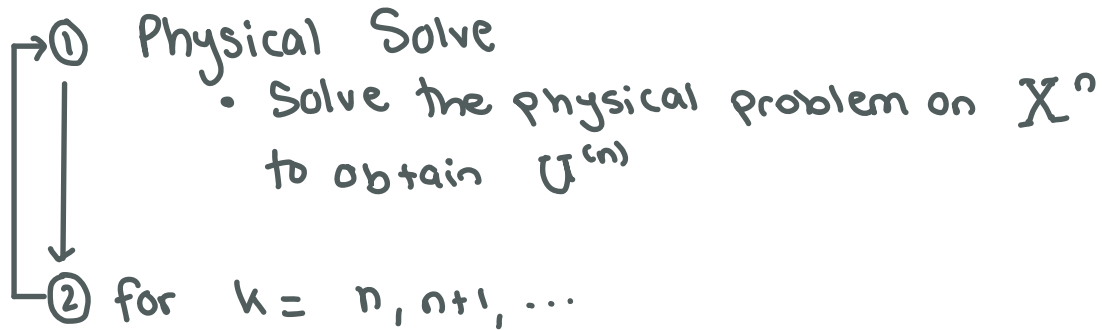 ① Physical Solve
• Solve the physical problem on X^n
to obtain U^(n)
② for k = n, n+1, ...